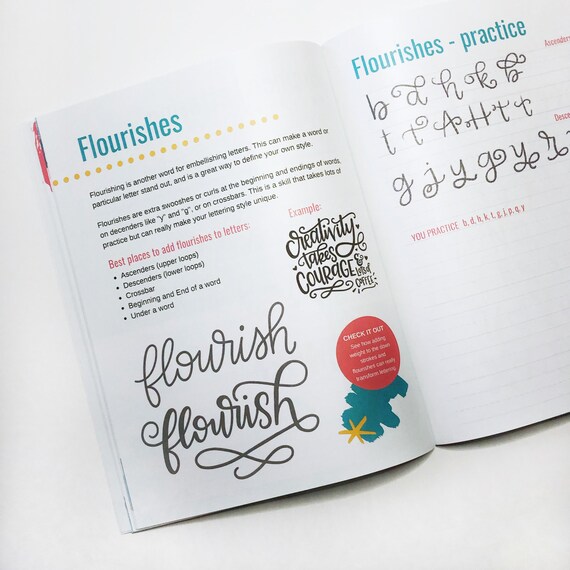 Flourishes
Flourishing is another word for embellishing letters. This can make a word or
particular letter stand out, and is a great way to define your own style.
Flourishes are extra swooshes or curls at the beginning and endings of words,
on decenders like "y" and "g", or on crossbars. This is a skill that takes lots of
practice but can really make your lettering style unique.
Best places to add flourishes to letters:
Ascenders (upper loops)
Descenders (lower loops)
Crossbar
Beginning and End of a word
Under a word
Example:
Creativity
takes
COURAGE
& a lot of
COFFEE
flourish
flourish
CHECK IT OUT
See how adding
weight to the down
strokes and
flourishes can really
transform lettering
Flourishes - practice
Ascenders
b d h k b
t t A H t t
g j y g y
YOU PRACTICE b, d, h, k, t, g, j, p, q, y